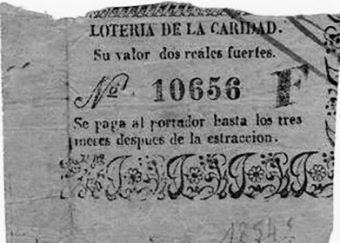 LOTERIA DE LA CARIDAD.
Su valor dos reales fuertes.
Nº 10656 F
Se paga al portador hasta los tres
meses despues de la estraccion.
1854